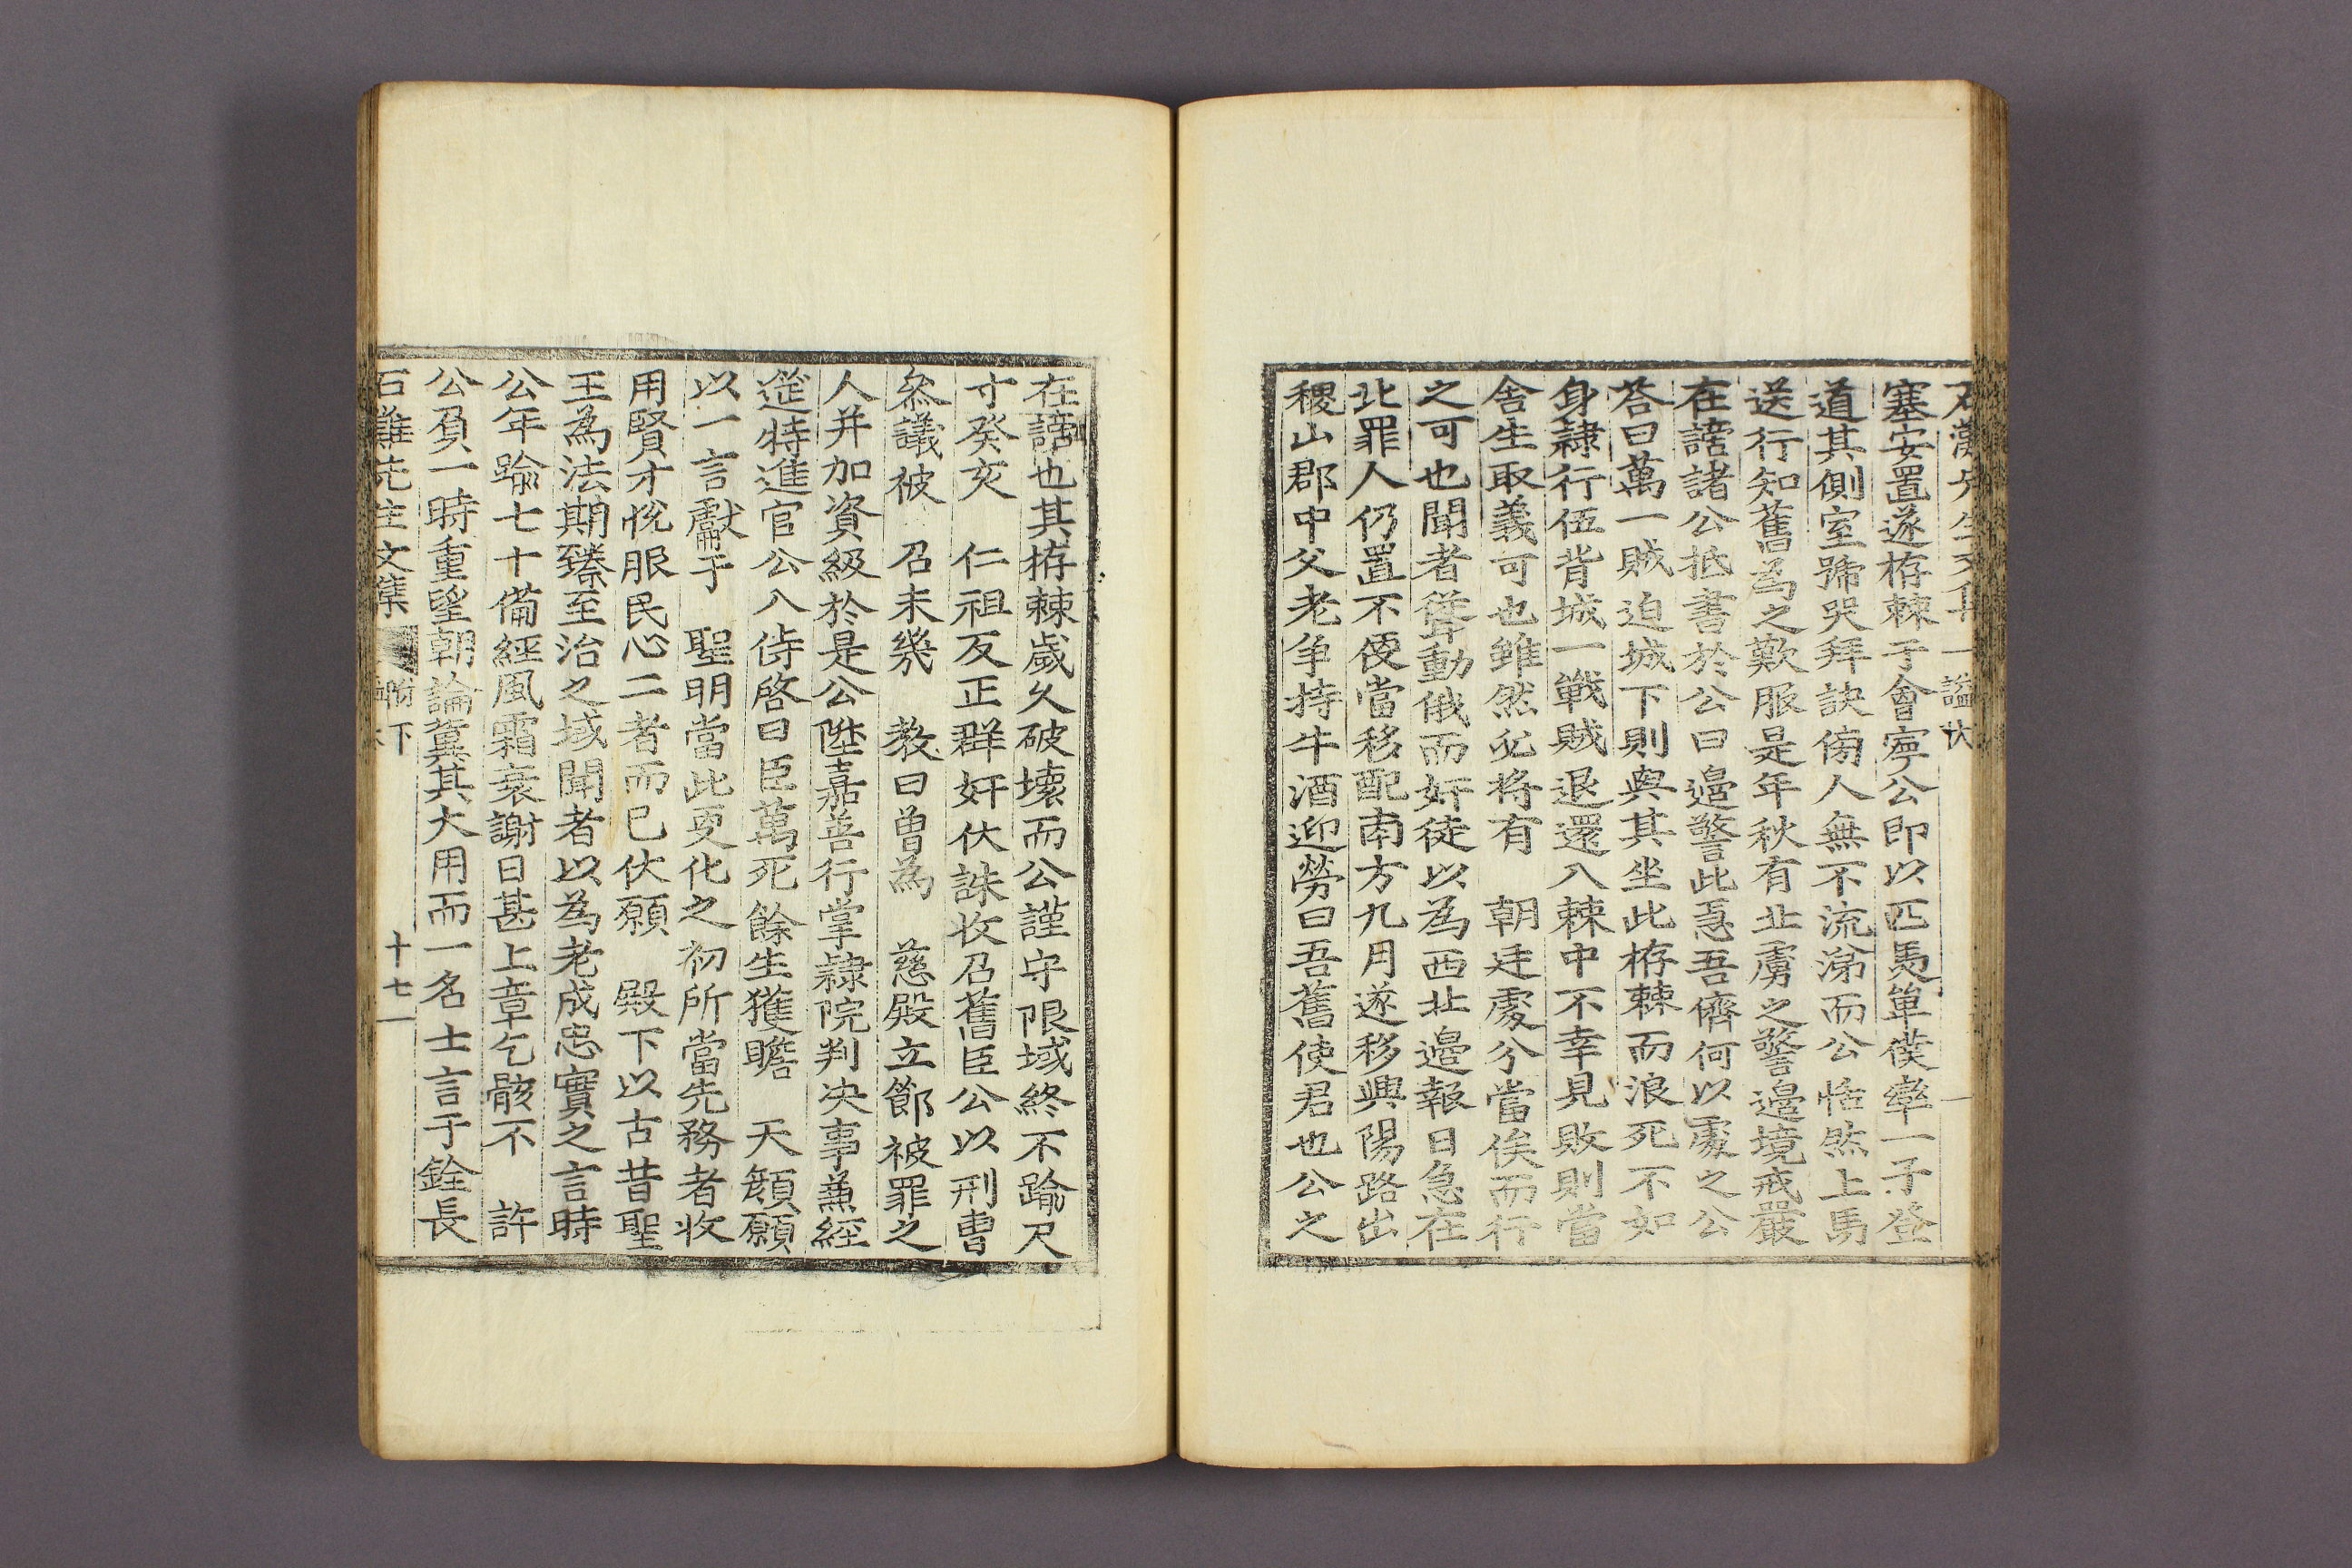 塞安置遂栫棘于會寧公即以匹馬單僕率一子登
道其側室號哭拜訣傍人無不流涕而公恬然上馬
送行知舊爲之歎服是年秋有北虜之警邊境戒嚴
在謫諸公抵書於公曰邊警此急吾儕何以處之公
荅曰萬一賊迫城下則與其坐此栫棘而浪死不如
身隸行伍背城一戰賊退還入棘中不幸見敗則當
舍生取義可也雖然必將有　朝廷處分當俟而行
之可也聞者聳動俄而奸徒以為西北邊報日急在
北罪人仍置不便當移配南方九月遂移興陽路出
稷山郡中父老争持牛酒迎勞曰吾舊使君也公之
在謫也其栫棘歲久破壞而公謹守限域終不踰尺
寸癸亥　仁祖反正群奸伏誅收召舊臣公以刑曹
叅議被　召未幾　教曰曾為　慈殿立節被罪之
人并加資級於是公陞嘉善行掌隸院判決事兼經
筵特進官公入侍啓曰臣萬死餘生獲瞻　天顏願
以一言獻于　聖明當此更化之初所當先務者收
用賢才悅服民心二者而已伏願　殿下以古昔聖
王為法期臻至治之域聞者以為老成忠實之言時
公年踰七十備經風霜衰謝日甚上章乞骸不　許
公負一時重望朝論冀其大用而一名士言于銓長
先生文集　附下　十七